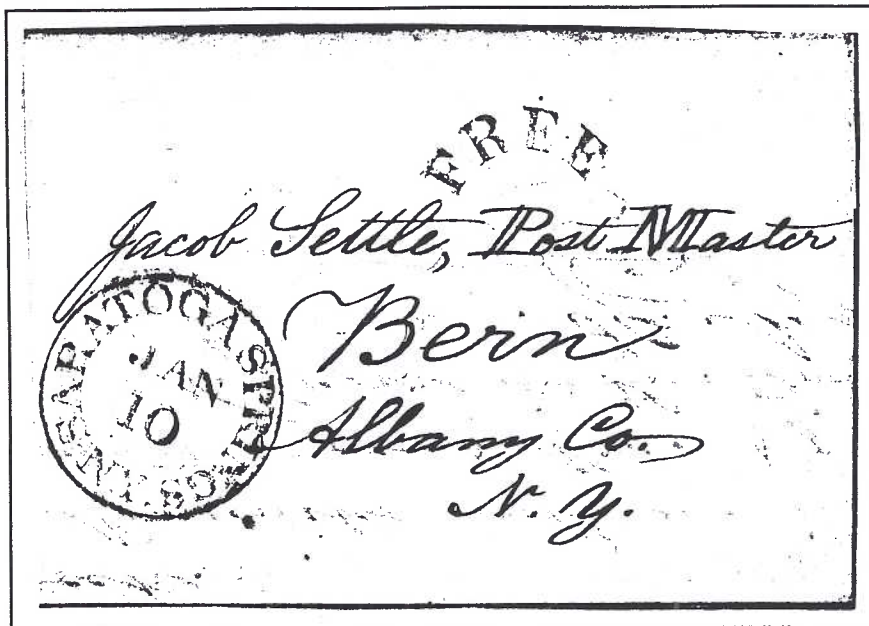 FREE
Jacob Settle, Post Master
Bern
Albany Co.
N. Y.
SARATOGA SPRINGS. N.Y.
JAN
10